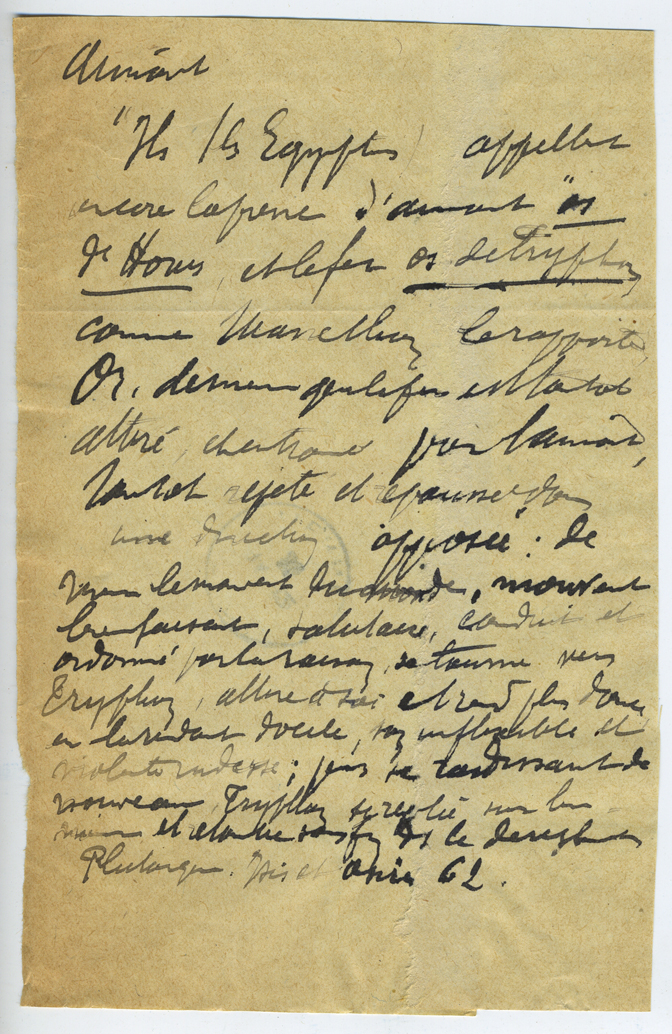 Aimant
"Ils (les Egyptiens) appellent
encore la pierre d'aimant "os
de Horus, et le fer os de Tryphon
comme Manethon le rapporte.
Or, de meme que le fer est tantot
attiré par l'aimant,
tantot rejeté et repoussé dans
une direction opposée": de
meme le mouvement du monde, mouvement
bienfaisant, salutaire, conduit et
ordonné par la raison, se tourne vers
Tryphon, attire à soi et rend plus douce
en la rendant docile, son inflexible et
violente rudesse; puis se raidissant de
nouveau, Tryphon se replie sur lui
meme et
Plutarque. Isis et Osiris 62.